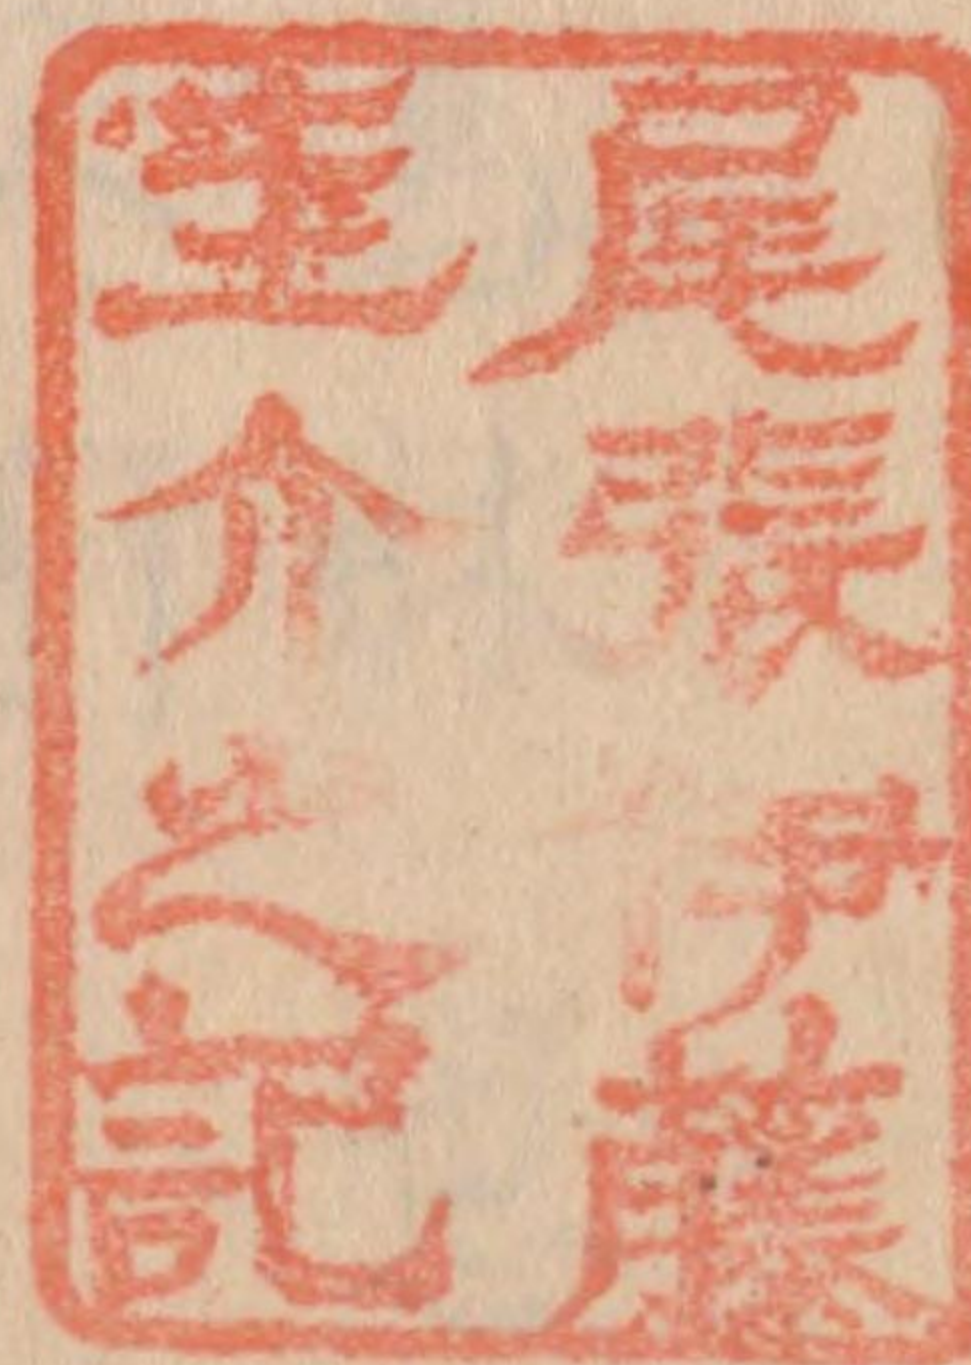 尾張伊藤
圭介之記